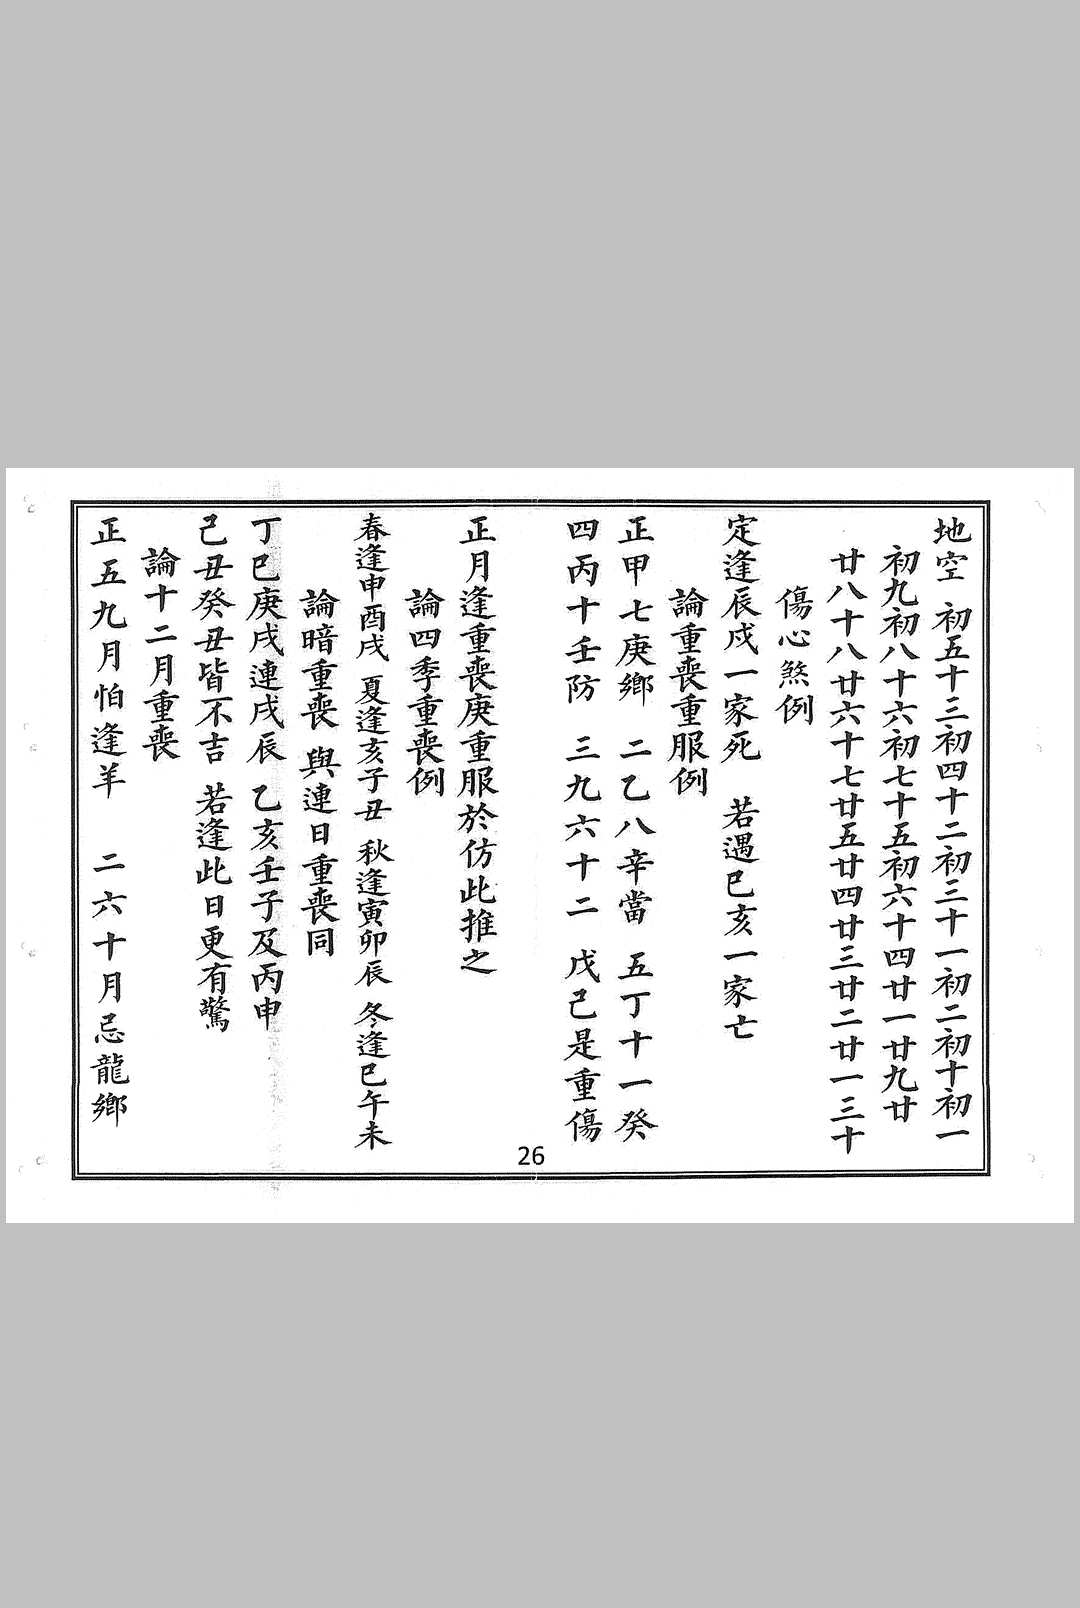 地空 初五十三初四十二初三十一初二初十初一
初九初八十六初七十五初六十四廿一廿九廿
廿八十八廿六十七廿五廿四廿三廿二廿一三十
傷心煞例
定逢辰戍一家死 若遇巳亥一家亡
論重喪重服例
正甲七庚鄉 二乙八辛當 五丁十一癸
四丙十壬防 三九六十二 戊己是重傷
正月逢重喪庚重服於仿此推之
論四季重喪例
春逢申酉戌 夏逢亥子丑 秋逢寅卯辰 冬逢巳午未
論暗重喪 與連日重喪同
丁巳庚戌連戌辰 乙亥壬子及丙申
己丑癸丑皆不吉 若逢此日更有驚
論十二月重喪
正五九月怕逢羊 二六十月忌龍鄉
26